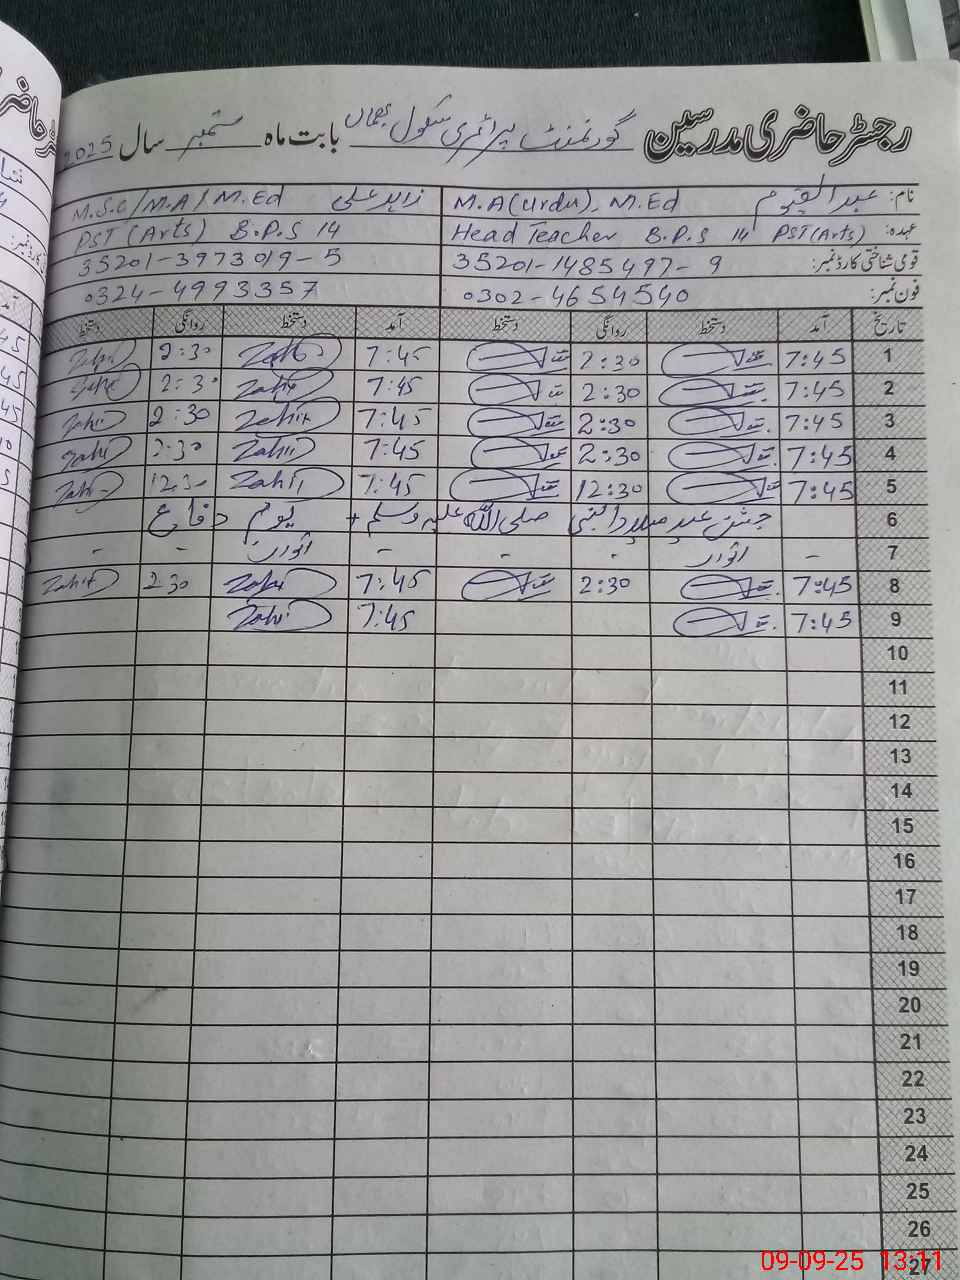 رجسٹر حاضری مدرسین گورنمنٹ پرائمری سکول بھماں بابت ماہ ستمبر سال 2025
نام: عبدالقیوم M.A(Urdu), M.Ed زاہد علی M.S.C/M.A/M.Ed
عہدہ: Head Teacher B.P.S 14 PST(Arts) PST(Arts) B.P.S 14
قومی شناختی کارڈ نمبر: 35201-1485497-9 35201-3973019-5
فون نمبر: 0302-4654540 0324-4993357
تاریخ آمد دستخط روانگی دستخط آمد دستخط روانگی دستخط
1 7:45 2:30 7:45 Zahid 2:30 Zahid
2 7:45 2:30 7:45 Zahid 2:30 Zahid
3 7:45 2:30 7:45 Zahid 2:30 Zahid
4 7:45 2:30 7:45 Zahid 2:30 Zahid
5 7:45 12:30 7:45 Zahid 12:30 Zahid
6 جشن عید میلادالنبی صلی اللہ علیہ وسلم + یوم دفاع
7 - اتوار - - - اتوار - -
8 7:45 2:30 7:45 Zahid 2:30 Zahid
9 7:45 7:45 Zahid
10
11
12
13
14
15
16
17
18
19
20
21
22
23
24
25
26
27
09-09-25 13:11